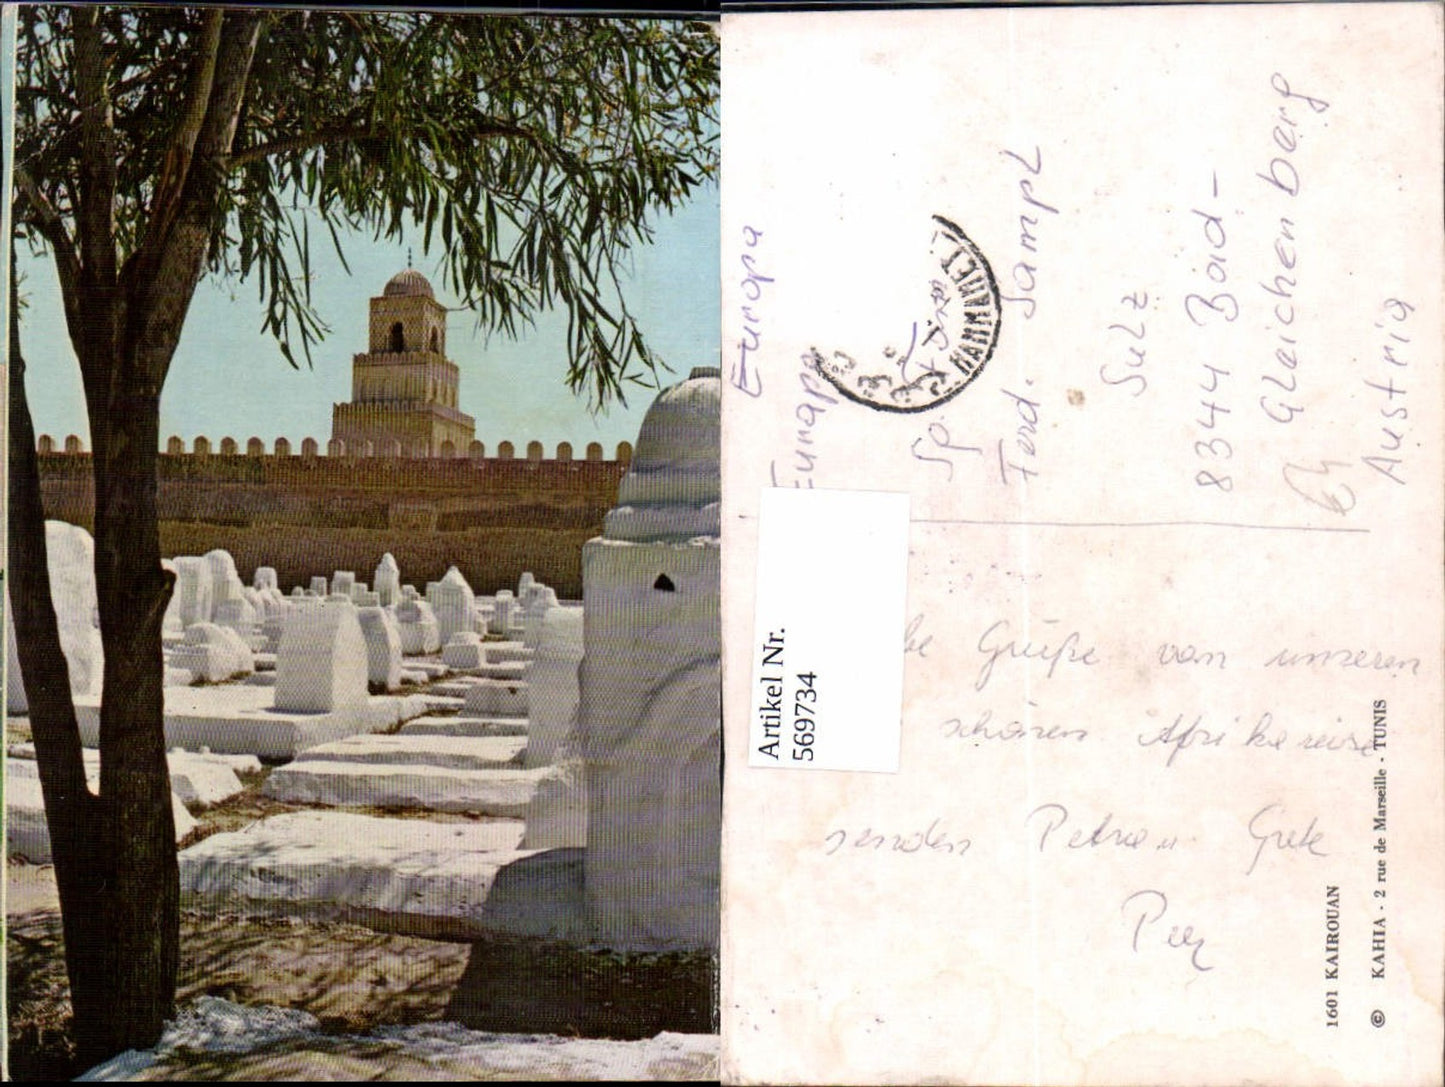 Europa
Europa
Sp.
Ferd. Sampl
Sulz
8344 Bad-
Gleichenberg
Austria
HAMMAMET
Artikel Nr.
569734
be Grüße von unseren
schönen Afrikareise
senden Petra u. Grete
1601 KAIROUAN
© KAHIA - 2 rue de Marseille - TUNIS